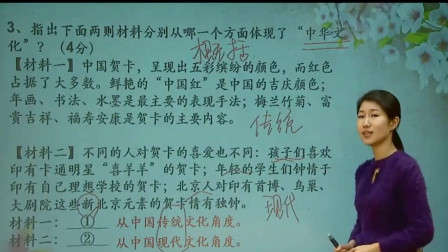 3、指出下面两则材料分别从哪一个方面体现了“中华文
化”？（4分）
概括
【材料一】中国贺卡，呈现出五彩缤纷的颜色，而红色
占据了大多数。鲜艳的“中国红”是中国的吉庆颜色；
年画、书法、水墨是最主要的表现手法；梅兰竹菊、富
贵吉祥、福寿安康是贺卡的主要内容。
传统
【材料二】不同的人对贺卡的喜爱也不同：孩子们喜欢
印有卡通明星“喜羊羊”的贺卡；年轻的学生们钟情于
印有自己理想学校的贺卡；北京人对印有首博、鸟巢、
大剧院这些新北京元素的贺卡情有独钟。
现代
材料一： ① 从中国传统文化角度。
材料二： ② 从中国现代文化角度。